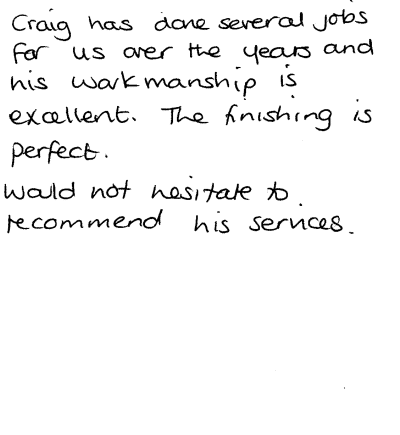 Craig has done several jobs
for us over the years and
his workmanship is
excellent. The finishing is
perfect.
Would not hesitate to
recommend his services.